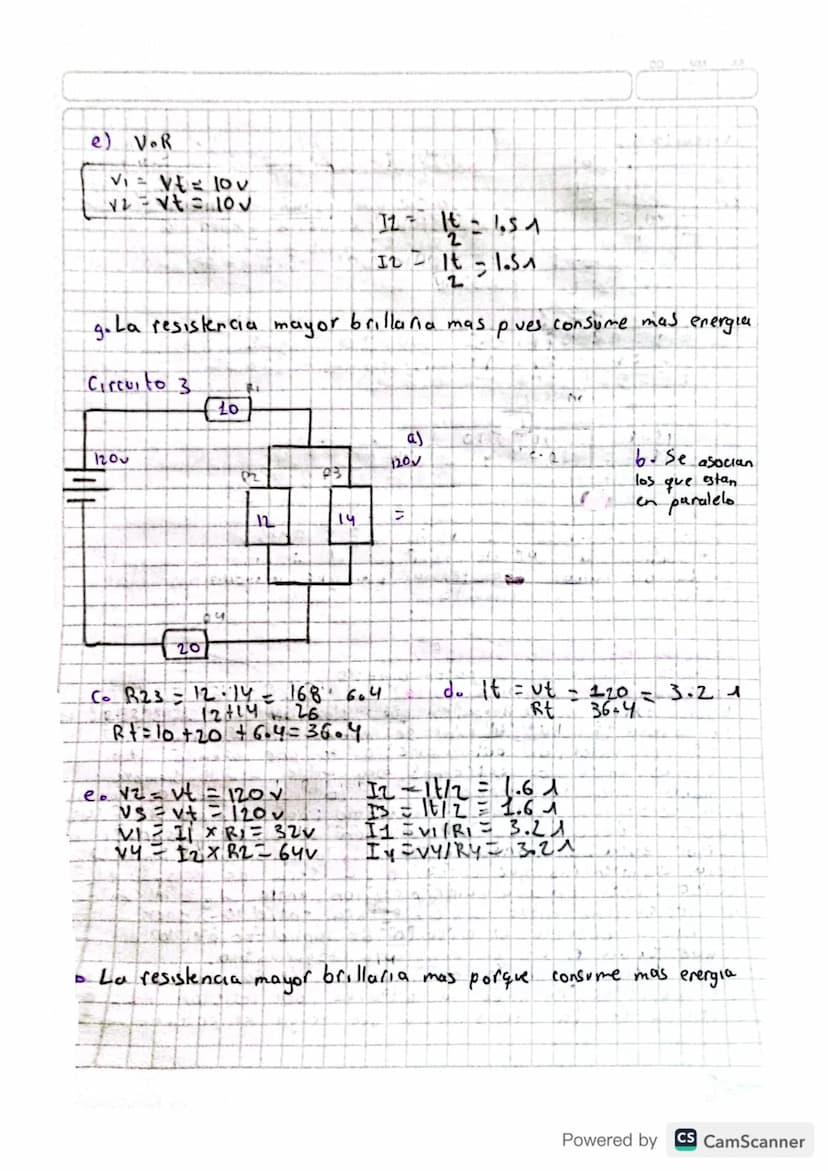 e) V∘R
V1 = Vt = 10v
V2 = Vt = 10v
I1 = It/2 = 1.5 A
I2 = It/2 = 1.5A
g. La resistencia mayor brillaria mas pues consume mas energia
Circuito 3
R1
10
120v
R2
R3
12
14
a)
120v
=
b. Se asocian
los que estan
en paralelo
R4
20
C. R23 = 12·14 = 168 6.4
12+14 26
Rt = 10 + 20 + 6.4 = 36.4
d. It = vt = 120 = 3.2 A
Rt 36.4
e. V2 = Vt = 120 v
V3 = Vt = 120 v
V1 = I1 x R1 = 32v
V4 = I2 x R2 = 64v
I2 = It/2 = 1.6 A
I3 = It/2 = 1.6 A
I1 = V1/R1 = 3.2 A
I4 = V4/R4 = 3.2 A
La resistencia mayor brillaria mas porque consume mas energia
Powered by CS CamScanner